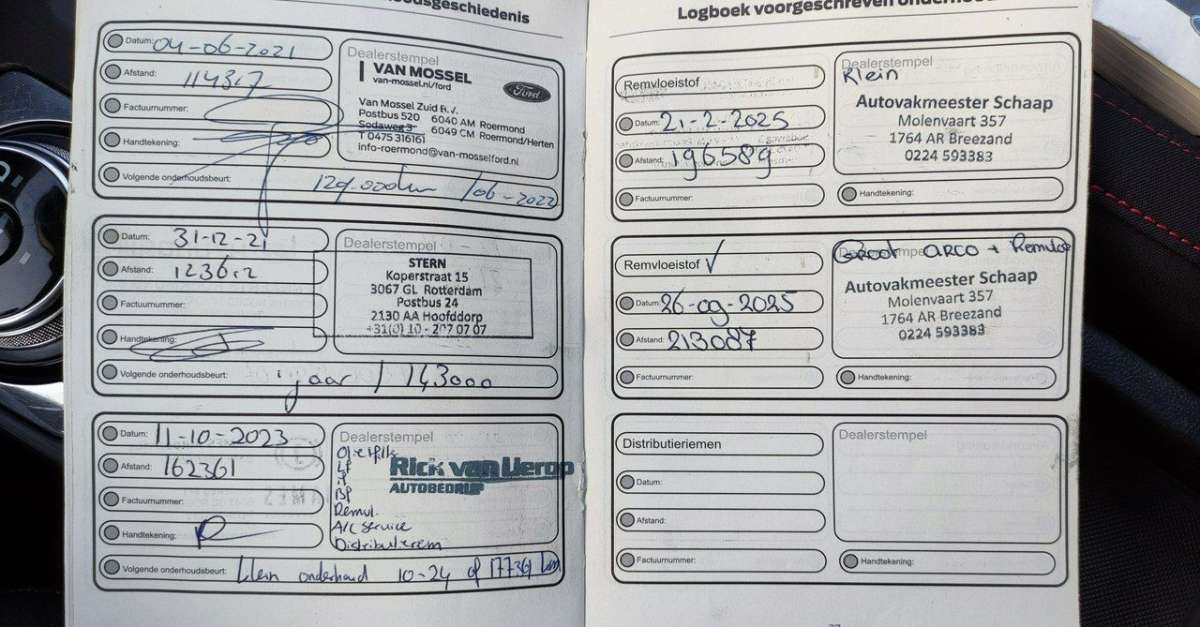 Logboek voorgeschreven
Datum: 04-06-2021
Afstand: 114317
Factuurnummer:
Handtekening:
Volgende onderhoudsbeurt: 129.000km /06-2022
Dealerstempel
VAN MOSSEL
van-mossel.nl/ford
Ford
Van Mossel Zuid B.V.
Postbus 520 6040 AM Roermond
Sodaweg 3 6049 CM Roermond/Herten
T 0475 316161
info-roermond@van-mosselford.nl
Datum: 31-12-21
Afstand:
Factuurnummer:
Handtekening:
Volgende onderhoudsbeurt: 1 jaar / 143000
Dealerstempel
STERN
Koperstraat 15
3067 GL Rotterdam
Postbus 24
2130 AA Hoofddorp
+31(0)10-207 07 07
Datum: 11-10-2023
Afstand: 162361
Factuurnummer:
Handtekening:
Volgende onderhoudsbeurt: klein onderhoud 10-24 of 177361 km
Dealerstempel
Rick van Ierop
AUTOBEDRIJF
BP
Remvl.
A/C service
Distributieriem
Remvloeistof
Datum: 21-2-2025
Afstand: 196589
Factuurnummer:
Dealerstempel
Klein
Autovakmeester Schaap
Molenvaart 357
1764 AR Breezand
0224 593383
Handtekening:
Remvloeistof √
Datum: 26-09-2025
Afstand: 213087
Factuurnummer:
Groot ARCO +
Autovakmeester Schaap
Molenvaart 357
1764 AR Breezand
0224 593383
Handtekening:
Distributieriemen
Datum:
Afstand:
Factuurnummer:
Dealerstempel
Handtekening: